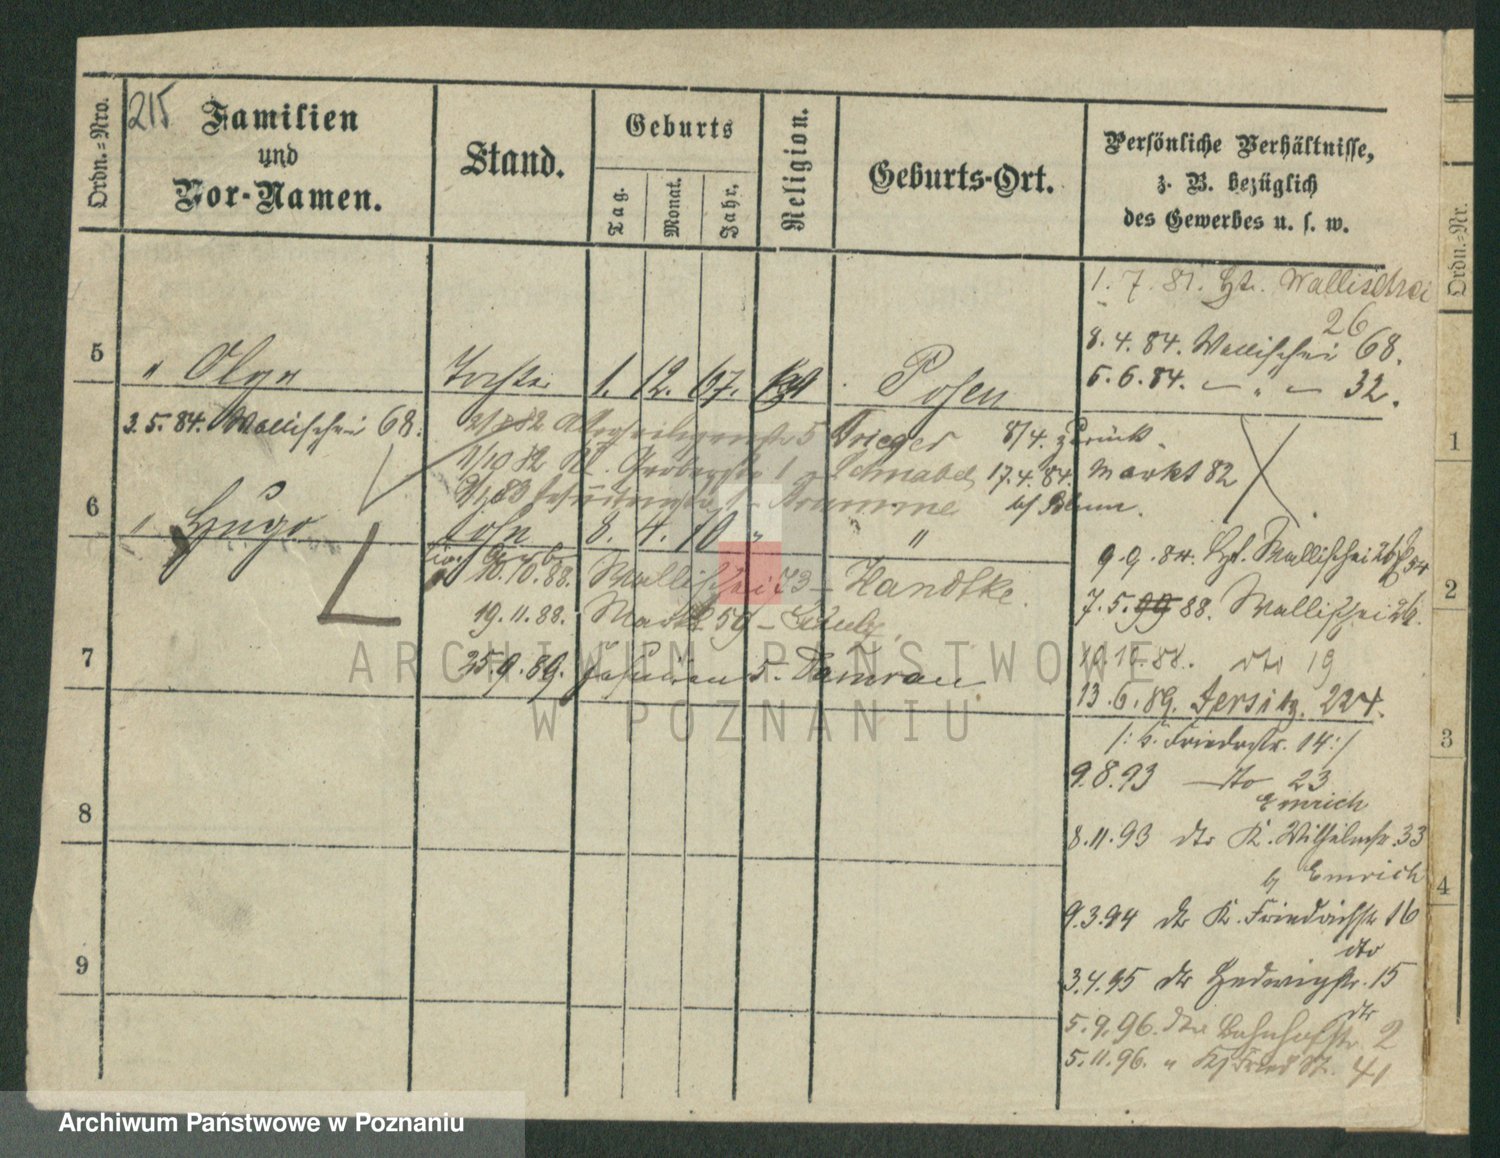 215
Ordn.=Nro.
Familien
und
Vor-Namen.
Stand.
Geburts
Tag.
Monat.
Jahr.
Religion.
Geburts-Ort.
Persönliche Verhältnisse,
z. B. bezüglich
des Gewerbes u. s. w.
Ordn.=Nr.
1. 7. 81. Wallischei
26
8. 4. 84. Wallischei 68.
5. 6. 84. — " — 32.
5
" Olga Tochter 1. 12. 67. Posen
3. 5. 84. Wallischei 68.
5 Krieger 8/4. zurück.
1/10 82 Kl. Gerberstr 1 Schmabel 17. 4. 84. Markt 82
Krumme b/ Blum.
6
" Hugo Sohn 8. 4. 70 " "
9. 9. 84. Wallischei
10. 10. 88. Wallischei 73 – Handtke.
7. 5. 88. Wallischei
19. 11. 88. Markt 59 –
7
25. 9. 89. Jesuiten 5. Damrau
10. 10. 88. dto 19
13. 6. 89. Jersitz. 224.
/: b. Friedrstr. 14 :/
9. 8. 93 — dto 23
Emrich
8
8. 11. 93 dto K. Wilhelmstr. 33
b/ Emrich
9. 3. 94 dto K. Friedrichstr 16
dto
9
3. 4. 95 dto Hedwigstr. 15
dto
5. 9. 96. dto Bahnhofstr. 2
5. 11. 96. " 41
1
2
3
4
ARCHIWUM PAŃSTWOWE
W POZNANIU
Archiwum Państwowe w Poznaniu